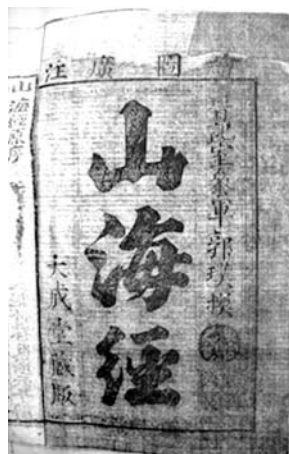 圖廣注
參軍郭璞撰
山海經
大成堂藏版
山海經原序